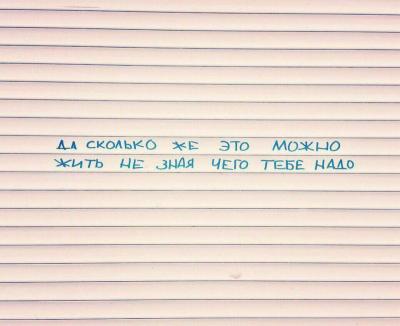 ДА СКОЛЬКО ЖЕ ЭТО МОЖНО
ЖИТЬ НЕ ЗНАЯ ЧЕГО ТЕБЕ НАДО